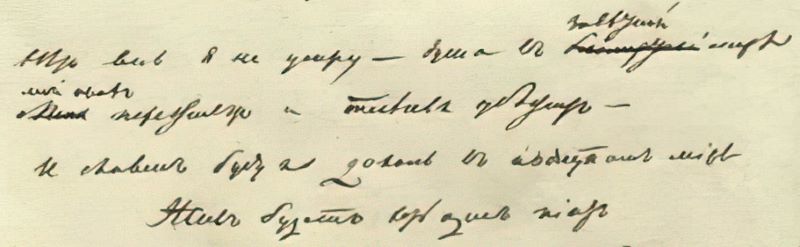 завѣтной
Нѣтъ весь я не умру — душа въ лирѣ
мой прахъ
переживетъ и тлѣнья убѣжитъ —
И славенъ буду я доколь въ подлунномъ мірѣ
Живъ будетъ хоть одинъ піитъ